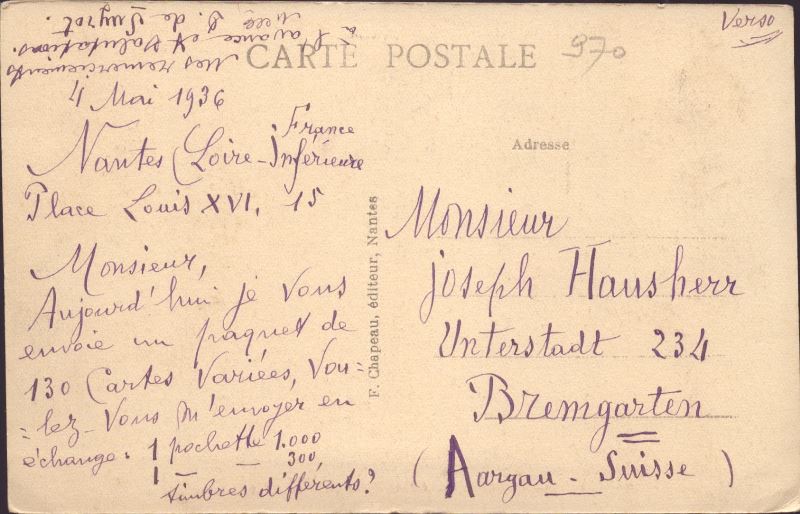 CARTE POSTALE
970
Verso
4 Mai 1936
France
Nantes (Loire-Inférieure
Place Louis XVI, 15
Monsieur,
Aujourd'hui je vous
envoie un paquet de
130 Cartes Variées, Vou=
=lez-Vous m'envoyer en
échange: 1 pochette 1.000
1 — — 300
timbres différents?
Mes remerciements
à l'avance et salutations.
Melle S. de
F. Chapeau, éditeur, Nantes
Adresse
Monsieur
Joseph Hausherr
Unterstadt 234
Bremgarten
(Aargau - Suisse)